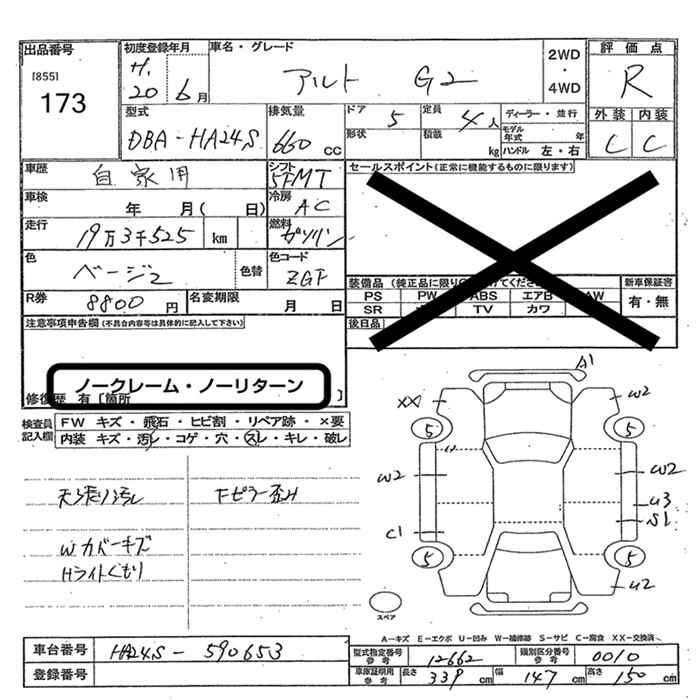 出品番号
[855]
173
初度登録年月
H.
20 6月
車名・グレード
アルト G2
2WD
・
4WD
評価点
R
型式
DBA-HA24S
排気量
660 cc
ドア 5
定員 4人
ディーラー・並行
形状
積載 kg
モデル年式 年
ハンドル 左・右
外装 内装
C C
車歴 自家用
シフト 5FMT
セールスポイント(正常に機能するものに限ります)
車検 年 月( 日)
冷房 AC
走行 19万3千525 km
燃料 ガソリン
色 ベージュ 色替
色コード ZGF
装備品 (純正品に限り
てください
PS PW ABS エアB AW
SR TV カワ
新車保証書
有・無
R券 8800円
名変期限 月 日
後日品
注意事項申告欄(不具合内容等は具体的に記入して下さい)
ノークレーム・ノーリターン
修復歴 有 [箇所 ]
検査員記入欄
FW キズ・飛石・ヒビ割・リペア跡・×要
内装 キズ・汚レ・コゲ・穴・スレ・キレ・破レ
天張り汚レ
Fピラー歪み
Wカバーキズ
Hライトくもり
A1
XX W2
5 5
W2 W2
U3
S1
C1
5 5
U2
スペア
A-キズ E-エクボ U-凹み W-補修跡 S-サビ C-腐食 XX-交換済
車台番号 HA24S-590653
登録番号
型式指定番号参考 12662
類別区分番号参考 0010
車庫証明用参考 長さ 339cm 幅 147cm 高さ 150cm